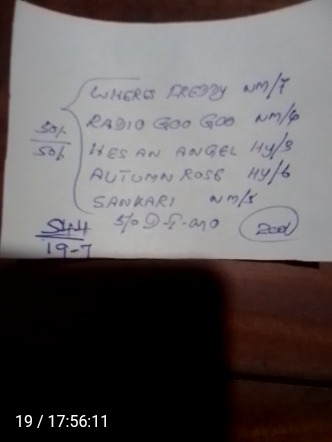 WHERES FREDDY NM/7
RADIO GOO GOO NM/4
HES AN ANGEL HY/3
AUTUMN ROSE HY/6
SANKARI NM/5
50/-
50/-
19-7
200/-
19 / 17:56:11